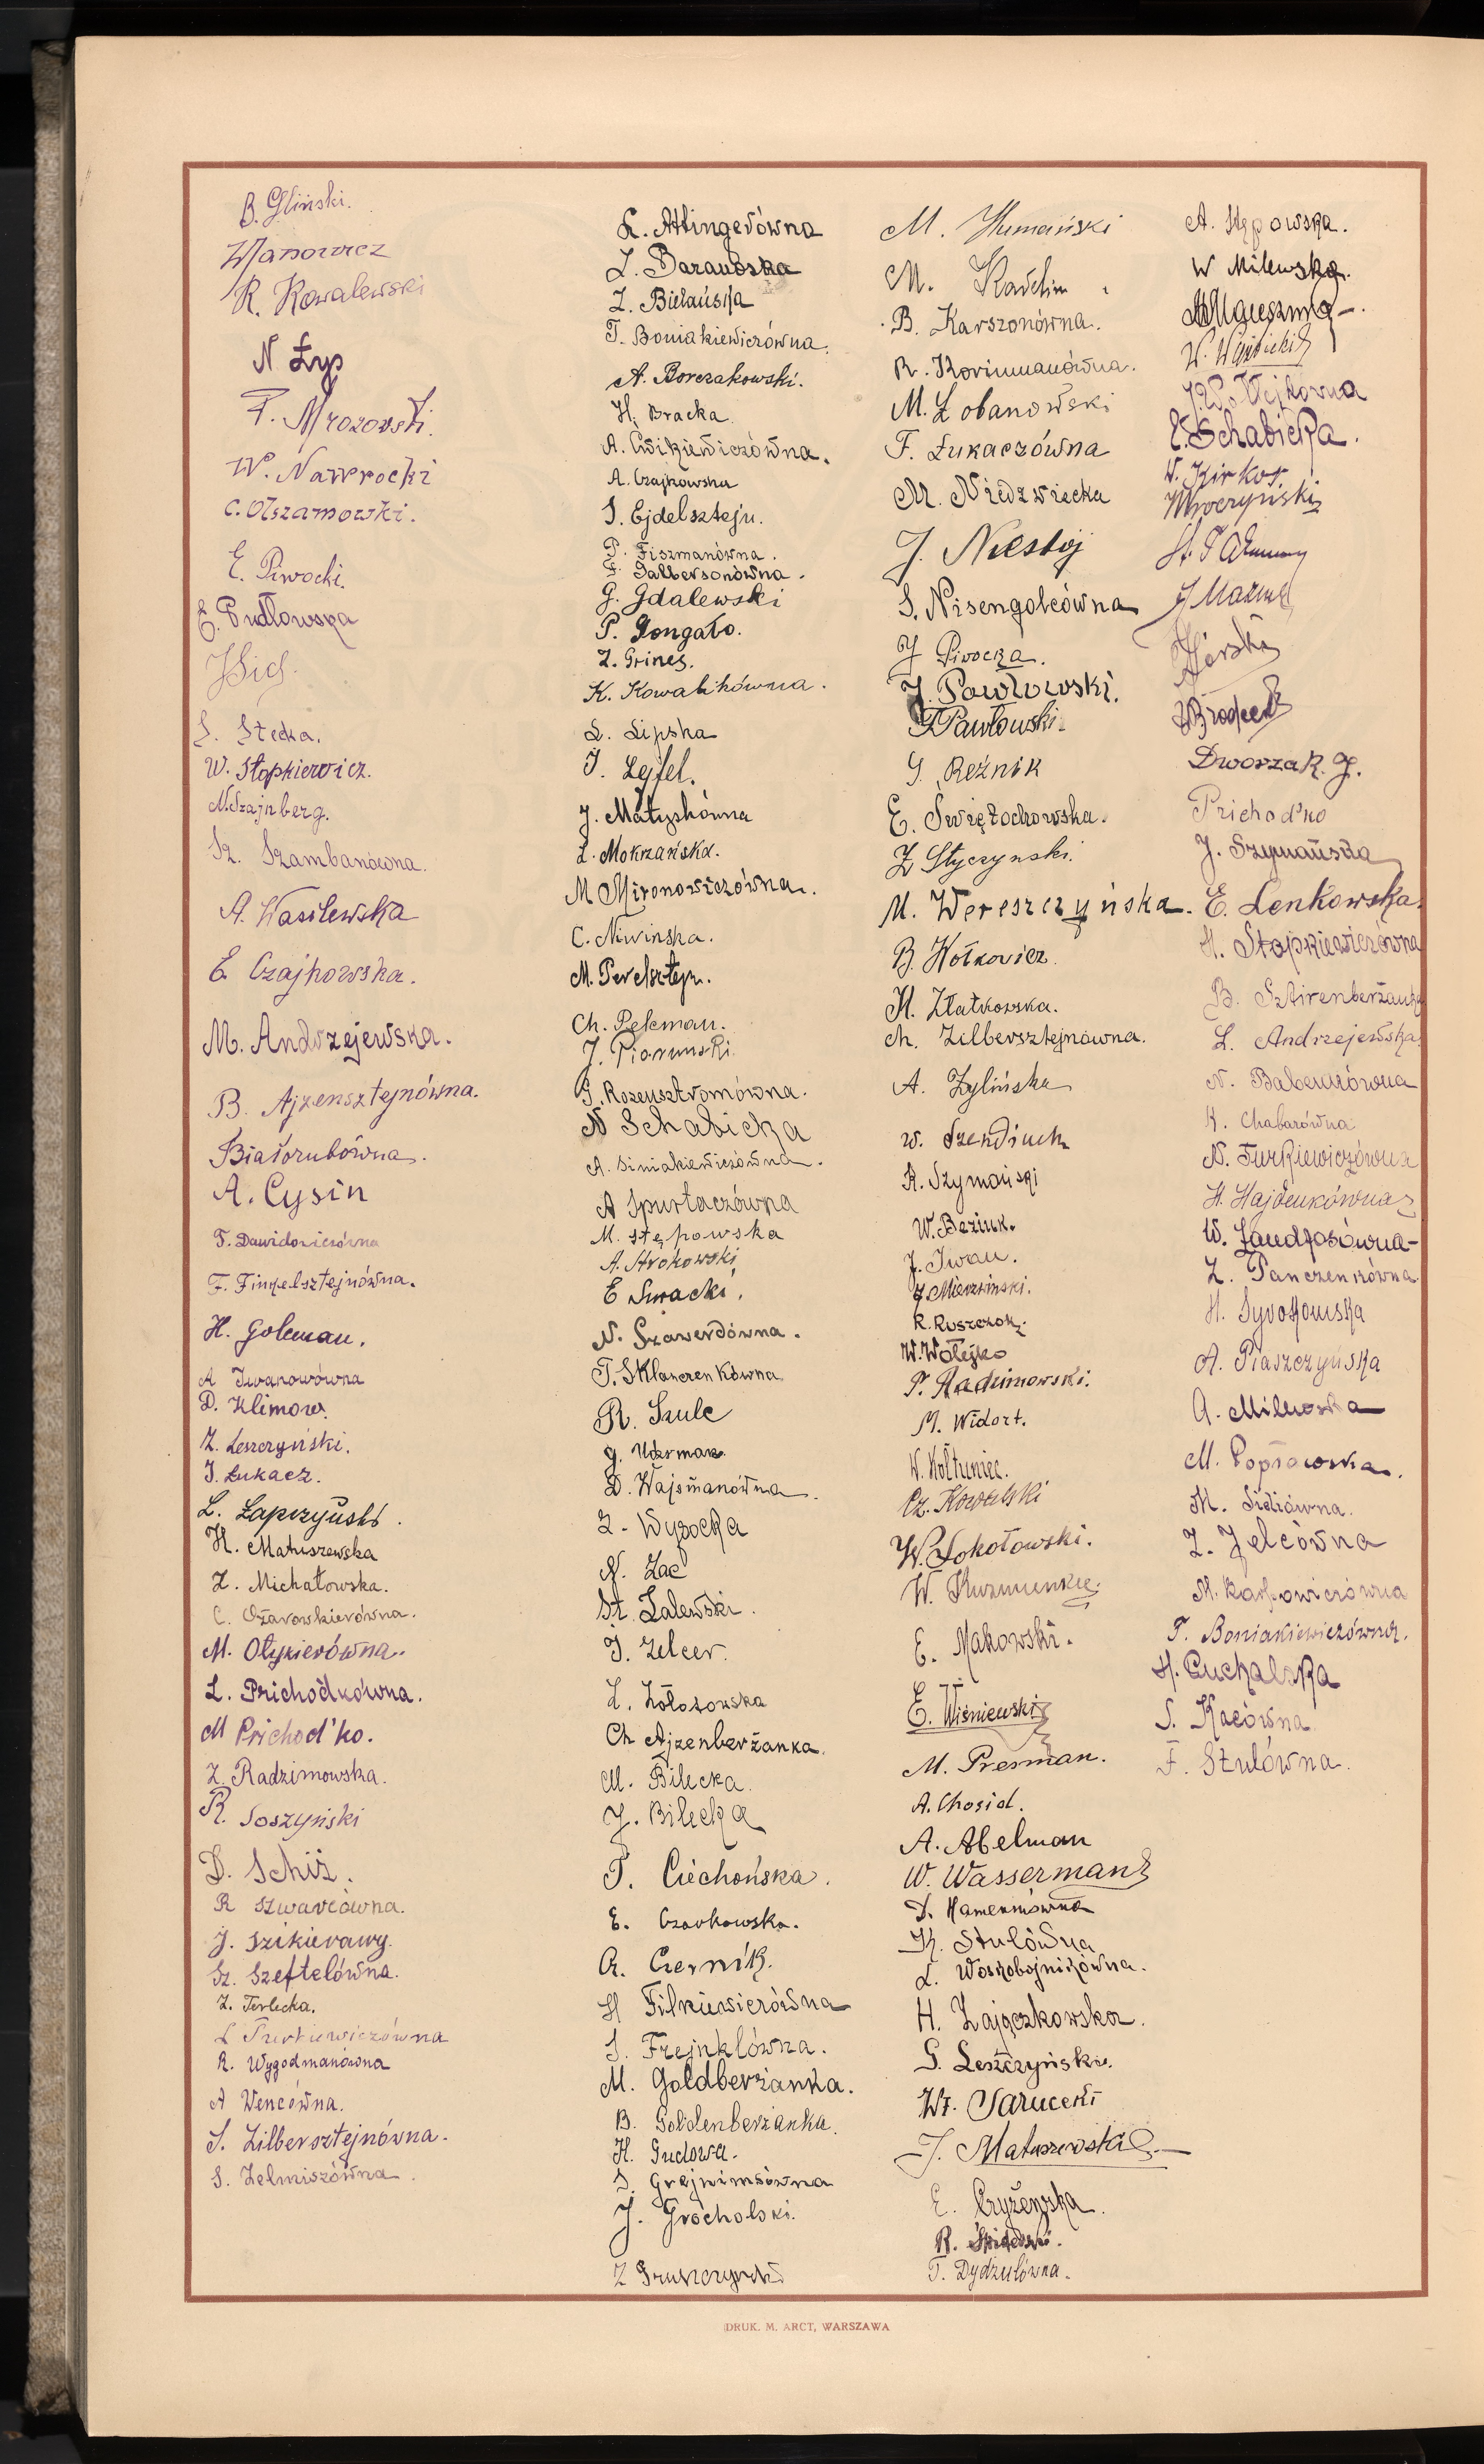 B. Gliński.
R. Kowalewski
N Łys
F. Mrozowski.
W. Nawrocki
C. Olszamowski.
E. Piwocki.
E. Pudłowska
S. Stecka.
W. Stopkiewicz.
N. Szajnberg.
Sz. Szambanówna.
A. Wasilewska
E Czajkowska.
M. Andrzejewska.
B. Ajzensztejnówna.
Białorubówna.
A. Cysin
T. Dawidowiczówna
F. Finkelsztejnówna.
H. Goleman.
A Iwanowówna
D. Klimow.
Z. Leszczyński.
J. Łukacz.
L. Łapczyński.
H. Matuszewska
Z. Michałowska.
C. Ożarowskierówna.
M. Ołykierówna.
L. Prichodkówna.
M Prichod'ko.
Z. Radzimowska.
R. Soszyński
D. Schiż.
R Szwarcówna.
J. Szikierawy.
Sz. Szeftelówna.
Z. Terlecka.
R. Wygodmanówna
A Wencówna.
S. Zilbersztejnówna.
S. Zelmiszówna.
L. Attingerówna
Z. Bielańska
T. Boniakiewiczówna.
A. Borczakowski.
H. Bracka
A. Ćwikiewiczówna.
A. Czajkowska
S. Ejdelsztejn.
P. Fiszmanówna.
F. Galbersonówna.
G. Gdalewski
P. Gongało.
Z. Grines.
K. Kowalikówna.
L. Lipska
J. Lejfel.
J. Matyskówna
L. Mokrzańska.
M Mironowiczówna.
C. Niwińska.
M. Perelsztejn.
Ch. Pekman.
J. Piorunski.
G. Rozensztromówna.
N Schabicka
A. Siniakiewiczówna.
A Spurtaczówna
M. Stępowska
A. Strokowski
E Suracki.
N. Szawerdówna.
T. Sklanczenkówna
R. Szulc
D. Wajsmanówna.
Z. Wysocka
N. Zac
St. Zalewski.
J. Zelcer.
L. Zołozowska
Ch Ajzenberżanka.
M. Bilecka.
J. Bilecka
T. Ciechońska.
E. Czarkowska.
A. Czernik.
H Filkiewiczówna
S. Frejnklówna.
M. Goldberżanka.
B. Goldenberżanka.
H. Gudowa.
J. Grocholski.
Z Gruszczyński
M. Humański
M. Karelin
B. Karszonówna.
R. Korinmanówna.
M. Łobanowski
F. Łukaczówna
M. Niedzwiecka
J. Niestoj
S. Nisengolcówna
J Piwocka.
J. Pawłowski.
T Pawłowski.
G. Reźnik
E. Świętochowska.
Z Styczynski.
M. Wereszczyńska.
B. Wołkowicz.
H. Złatkowska.
Ch. Zilbersztejnówna.
A. Żylińska
W. Szendiuch
R. Szymański
W. Beziuk.
J. Iwan.
J. Mierziński.
R. Ruszczok.
W. Wołejko
P. Radzimowski.
M. Widort.
W. Kołtuniec.
Cz. Kowalski
W. Sokołowski.
W. Kuzmienkie.
E. Makowski.
E. Wiśniewski
M. Presman.
A. Chosid.
A. Abelman
W. Wasserman
K. Stulówna
L. Woskobojnikówna.
H. Zajączkowska.
S. Leszczyński.
J. Matuszewska
E. Czyżewska.
T. Dydziulówna.
A. Stępowska.
W Milewska.
E. Schabicka.
Mroczyński
J Mazur
Górski
Dworzak. J.
Prichod'ko
J. Szymańska
E. Lenkowska.
H. Stopkiewiczówna
B. Sztirenberżanka
L. Andrzejewska.
K. Chabarówna
N. Furkiewiczówna
H. Hajdeukówna
Z. Panczenkówna.
H. Sysołowska
A. Piaszczyńska
A. Milewska
M. Popławska.
M. Sidiówna.
Z. Zelcówna
M. Karpowiczówna
T. Boniakiewiczówna.
H. Puchalska
S. Kacówna.
F. Stulówna.
DRUK. M. ARCT, WARSZAWA